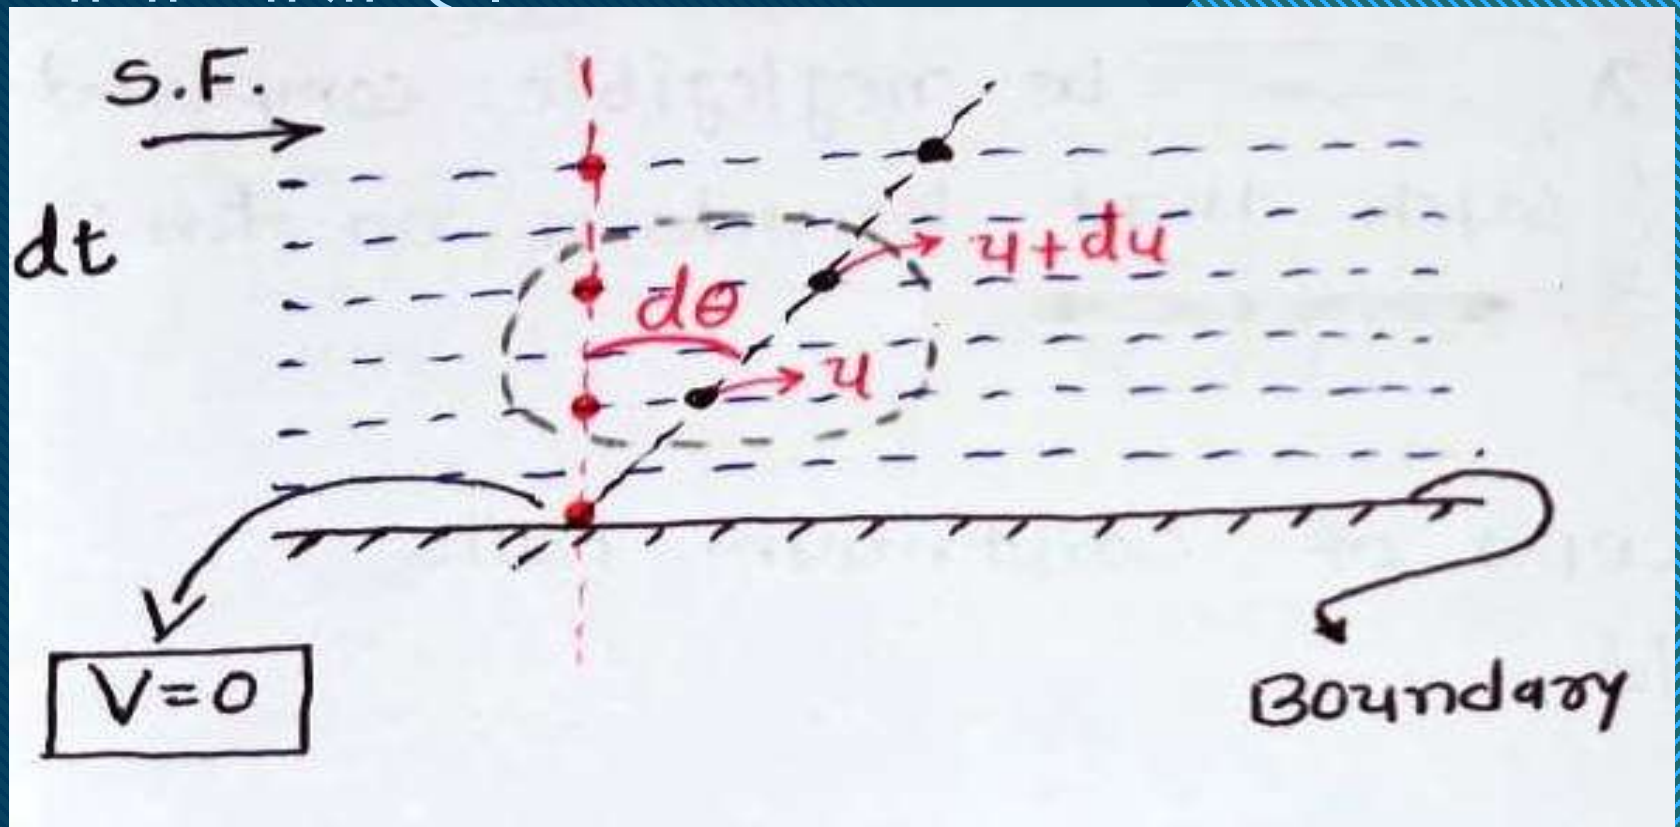 S.F.
dt
u+du
dθ
u
V=0
Boundary